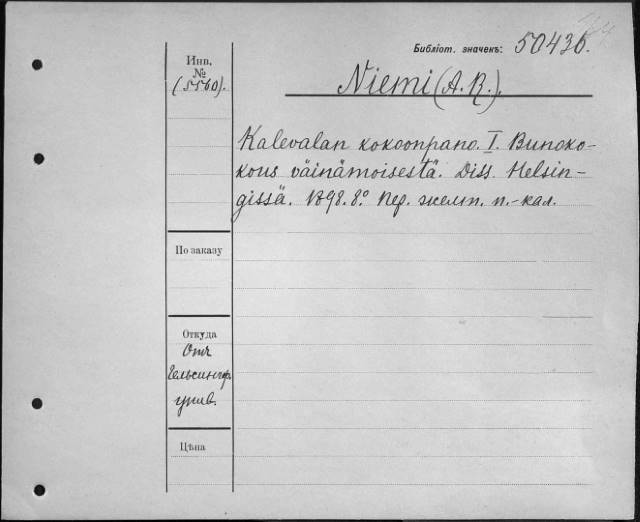 Библіот. значекъ: 50436.
Инв.
№
(5560).
Niemi (A. R.).
Kalevalan kokoonpano. I. Runoko-
kous väinämoisestä. Diss. Helsin-
gissä. 1898. 8° пер. желт. п.-кал.
По заказу
Откуда
Отъ
Гельсингф.
унив.
Цѣна